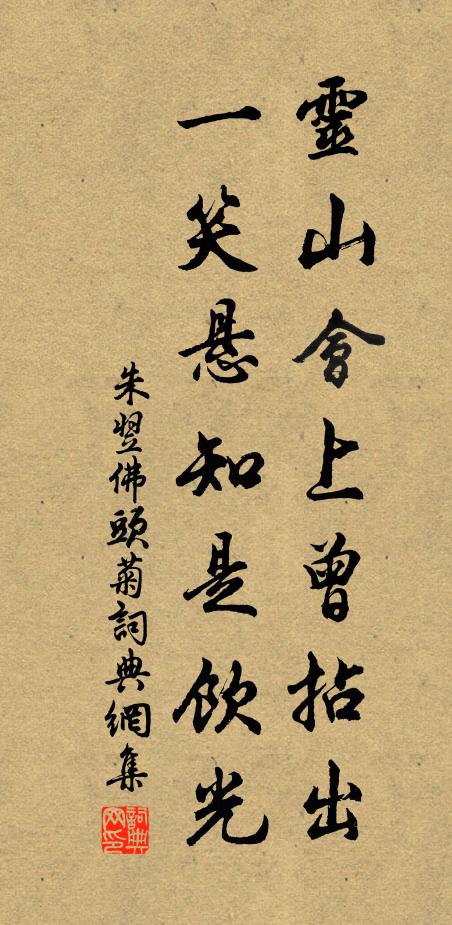 靈山會上曾拈出
一笑悬知是飲光
朱翌佛頭菊詞典網集
詞典網印